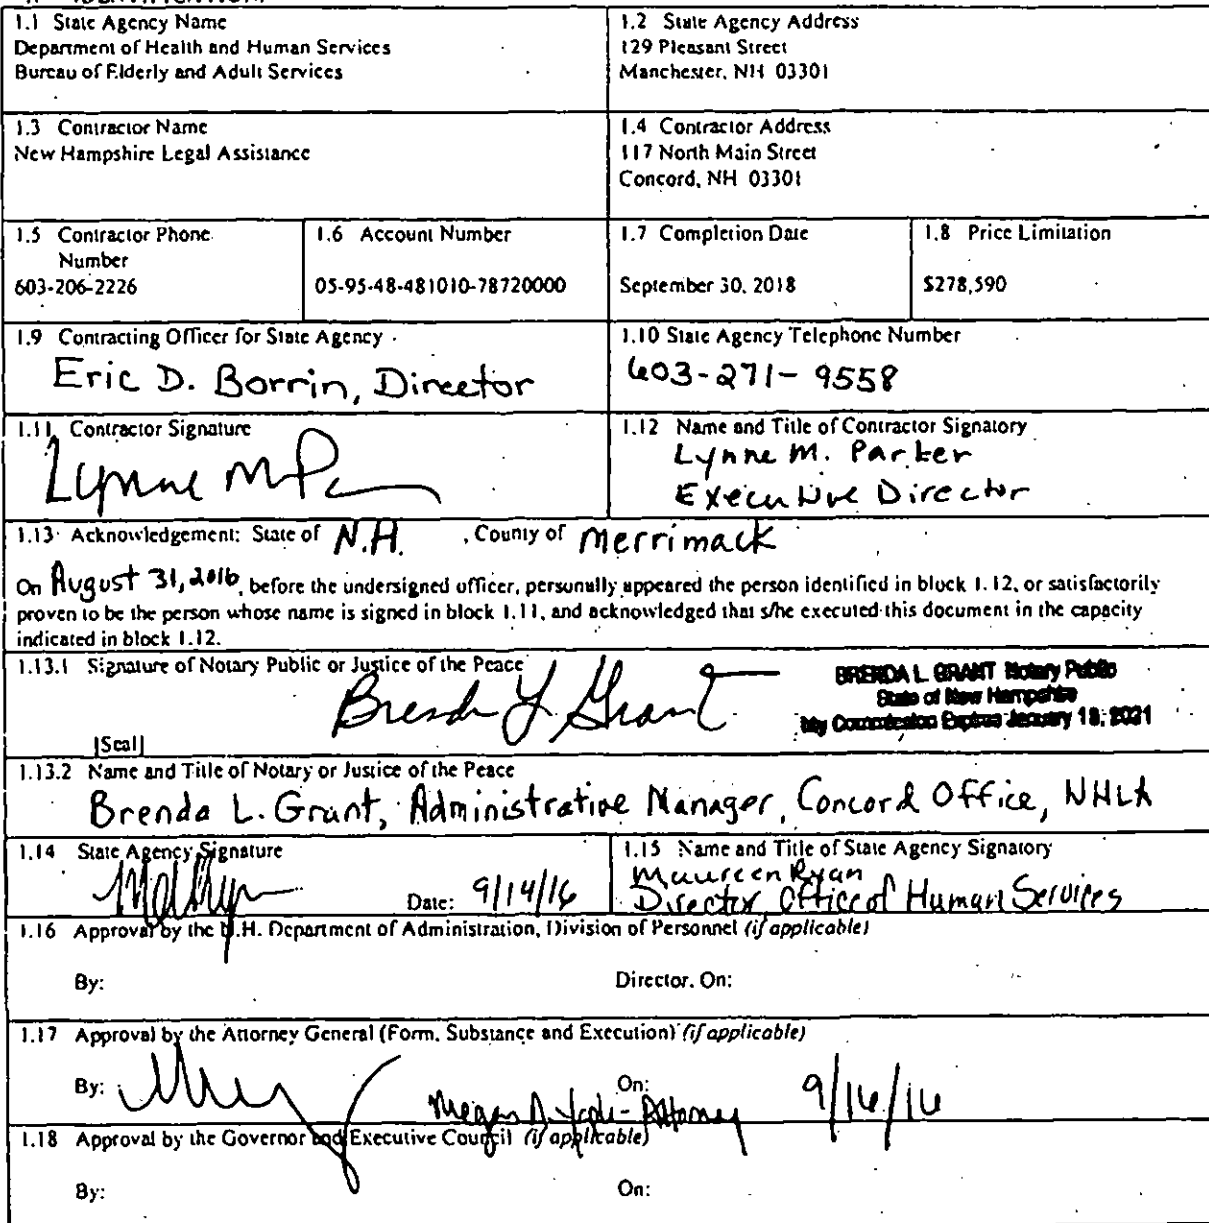 1.1 State Agency Name
Department of Health and Human Services
Bureau of Elderly and Adult Services
1.2 State Agency Address
129 Pleasant Street
Manchester, NH 03301
1.3 Contractor Name
New Hampshire Legal Assistance
1.4 Contractor Address
117 North Main Street
Concord, NH 03301
1.5 Contractor Phone
Number
603-206-2226
1.6 Account Number
05-95-48-481010-78720000
1.7 Completion Date
September 30, 2018
1.8 Price Limitation
$278,590
1.9 Contracting Officer for State Agency
Eric D. Borrin, Director
1.10 State Agency Telephone Number
603-271-9558
1.11 Contractor Signature
Lynne M
1.12 Name and Title of Contractor Signatory
Lynne M. Parker
Executive Director
1.13 Acknowledgement: State of N.H. , County of Merrimack
On August 31, 2016, before the undersigned officer, personally appeared the person identified in block 1.12, or satisfactorily
proven to be the person whose name is signed in block 1.11, and acknowledged that s/he executed this document in the capacity
indicated in block 1.12.
1.13.1 Signature of Notary Public or Justice of the Peace
Brenda L Grant
BRENDA L. GRANT Notary Public
State of New Hampshire
My Commission Expires January 18, 2021
[Seal]
1.13.2 Name and Title of Notary or Justice of the Peace
Brenda L. Grant, Administrative Manager, Concord Office, NHLA
1.14 State Agency Signature
Date: 9/14/16
1.15 Name and Title of State Agency Signatory
Maureen Ryan
Director Office of Human Services
1.16 Approval by the N.H. Department of Administration, Division of Personnel (if applicable)
By:
Director, On:
1.17 Approval by the Attorney General (Form, Substance and Execution) (if applicable)
By:
On:
Megan A. - Attorney 9/16/16
1.18 Approval by the Governor and Executive Council (if applicable)
By:
On: